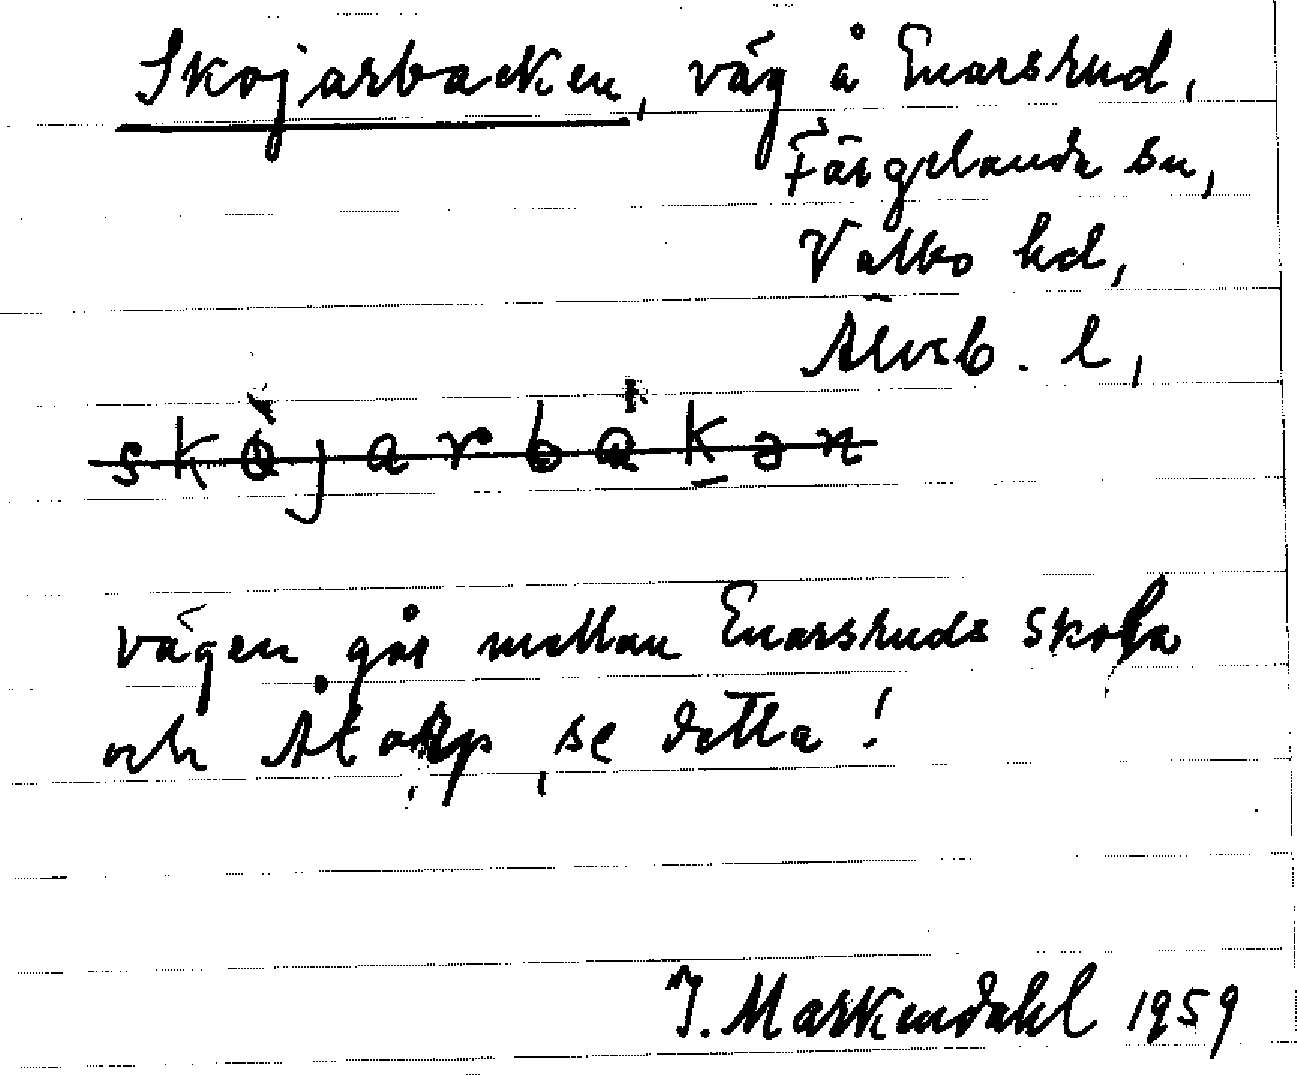 Skojarbacken, väg å Enarsrud,
Färgelanda sn,
Valbo hd,
Älvsb. l,
skòjarbàkən
vägen går mellan Enarsruds skola
och Åtorp, se detta!
J. Markendahl 1959